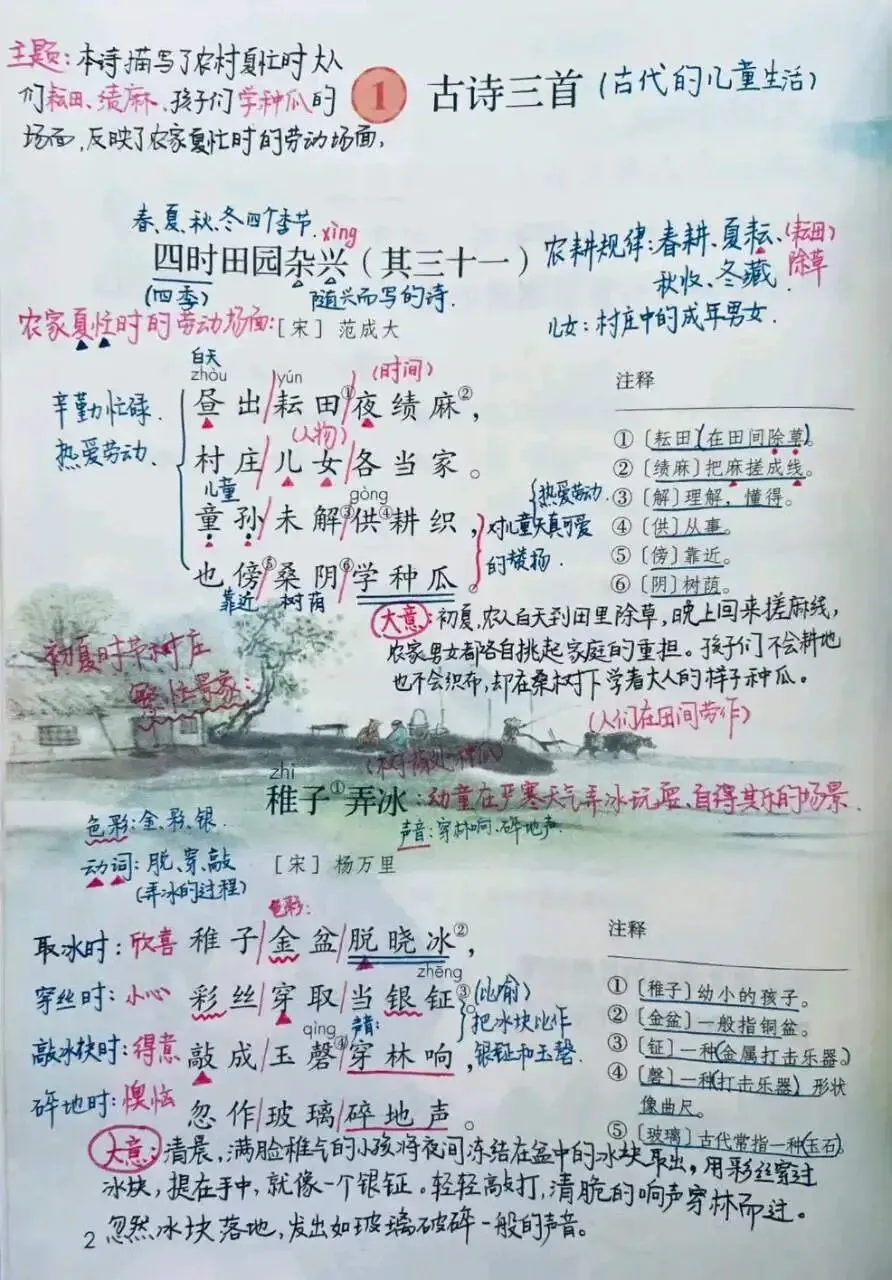 主题：本诗描写了农村夏忙时大人
们耘田、绩麻、孩子们学种瓜的
场面，反映了农家夏忙时的劳动场面。
1 古诗三首（古代的儿童生活）
春、夏、秋、冬四个季节.
xìng
四时田园杂兴（其三十一）
(四季) 随兴而写的诗.
农耕规律：春耕、夏耘、(耘田)
除草
秋收、冬藏.
儿女：村庄中的成年男女.
农家夏忙时的劳动场面：
［宋］范成大
辛勤忙碌.
热爱劳动.
白天 (时间)
zhòu yún
昼出/耘田①/夜绩麻②，
(人物)
村庄/儿女/各当家。
儿童 gòng
童孙/未解③/供④耕织，
也傍⑤/桑阴⑥/学种瓜。
靠近 树荫
热爱劳动.
对儿童天真可爱
的赞扬.
注释
①〔耘田〕(在田间除草)。
②〔绩麻〕把麻搓成线。
③〔解〕理解，懂得。
④〔供〕从事。
⑤〔傍〕靠近。
⑥〔阴〕树荫。
大意：初夏，农人白天到田里除草，晚上回来搓麻线，
农家男女都各自挑起家庭的重担。孩子们不会耕地
也不会织布，却在桑树下学着大人的样子种瓜。
初夏时节村庄
繁忙景象：
(人们在田间劳作)
zhì
稚子①弄冰：动童在严寒天气弄冰玩耍、自得其乐的场景
声音：穿林响、碎地声.
色彩：金、彩、银.
动词：脱、穿、敲
(弄冰的过程)
［宋］杨万里
色彩：
取冰时：欣喜 稚子/金盆/脱晓冰②，
zhēng
穿丝时：小心 彩丝/穿取/当银钲③。
qìng 声音：
敲冰块时：得意 敲成/玉磬④/穿林响，
碎地时：懊恼 忽作/玻璃/碎地声。
(比喻)
把冰块比作
银钲和玉磬.
注释
①〔稚子〕幼小的孩子。
②〔金盆〕一般指铜盆。
③〔钲〕一种(金属打击乐器。)
④〔磬〕一种(打击乐器)，形状
像曲尺。
⑤〔玻璃〕古代常指一种(玉石)。
大意：清晨，满脸稚气的小孩将夜间冻结在盆中的冰块取出，用彩丝穿过
冰块，提在手中，就像一个银钲。轻轻敲打，清脆的响声穿林而过。
忽然冰块落地，发出如玻璃破碎一般的声音。
2